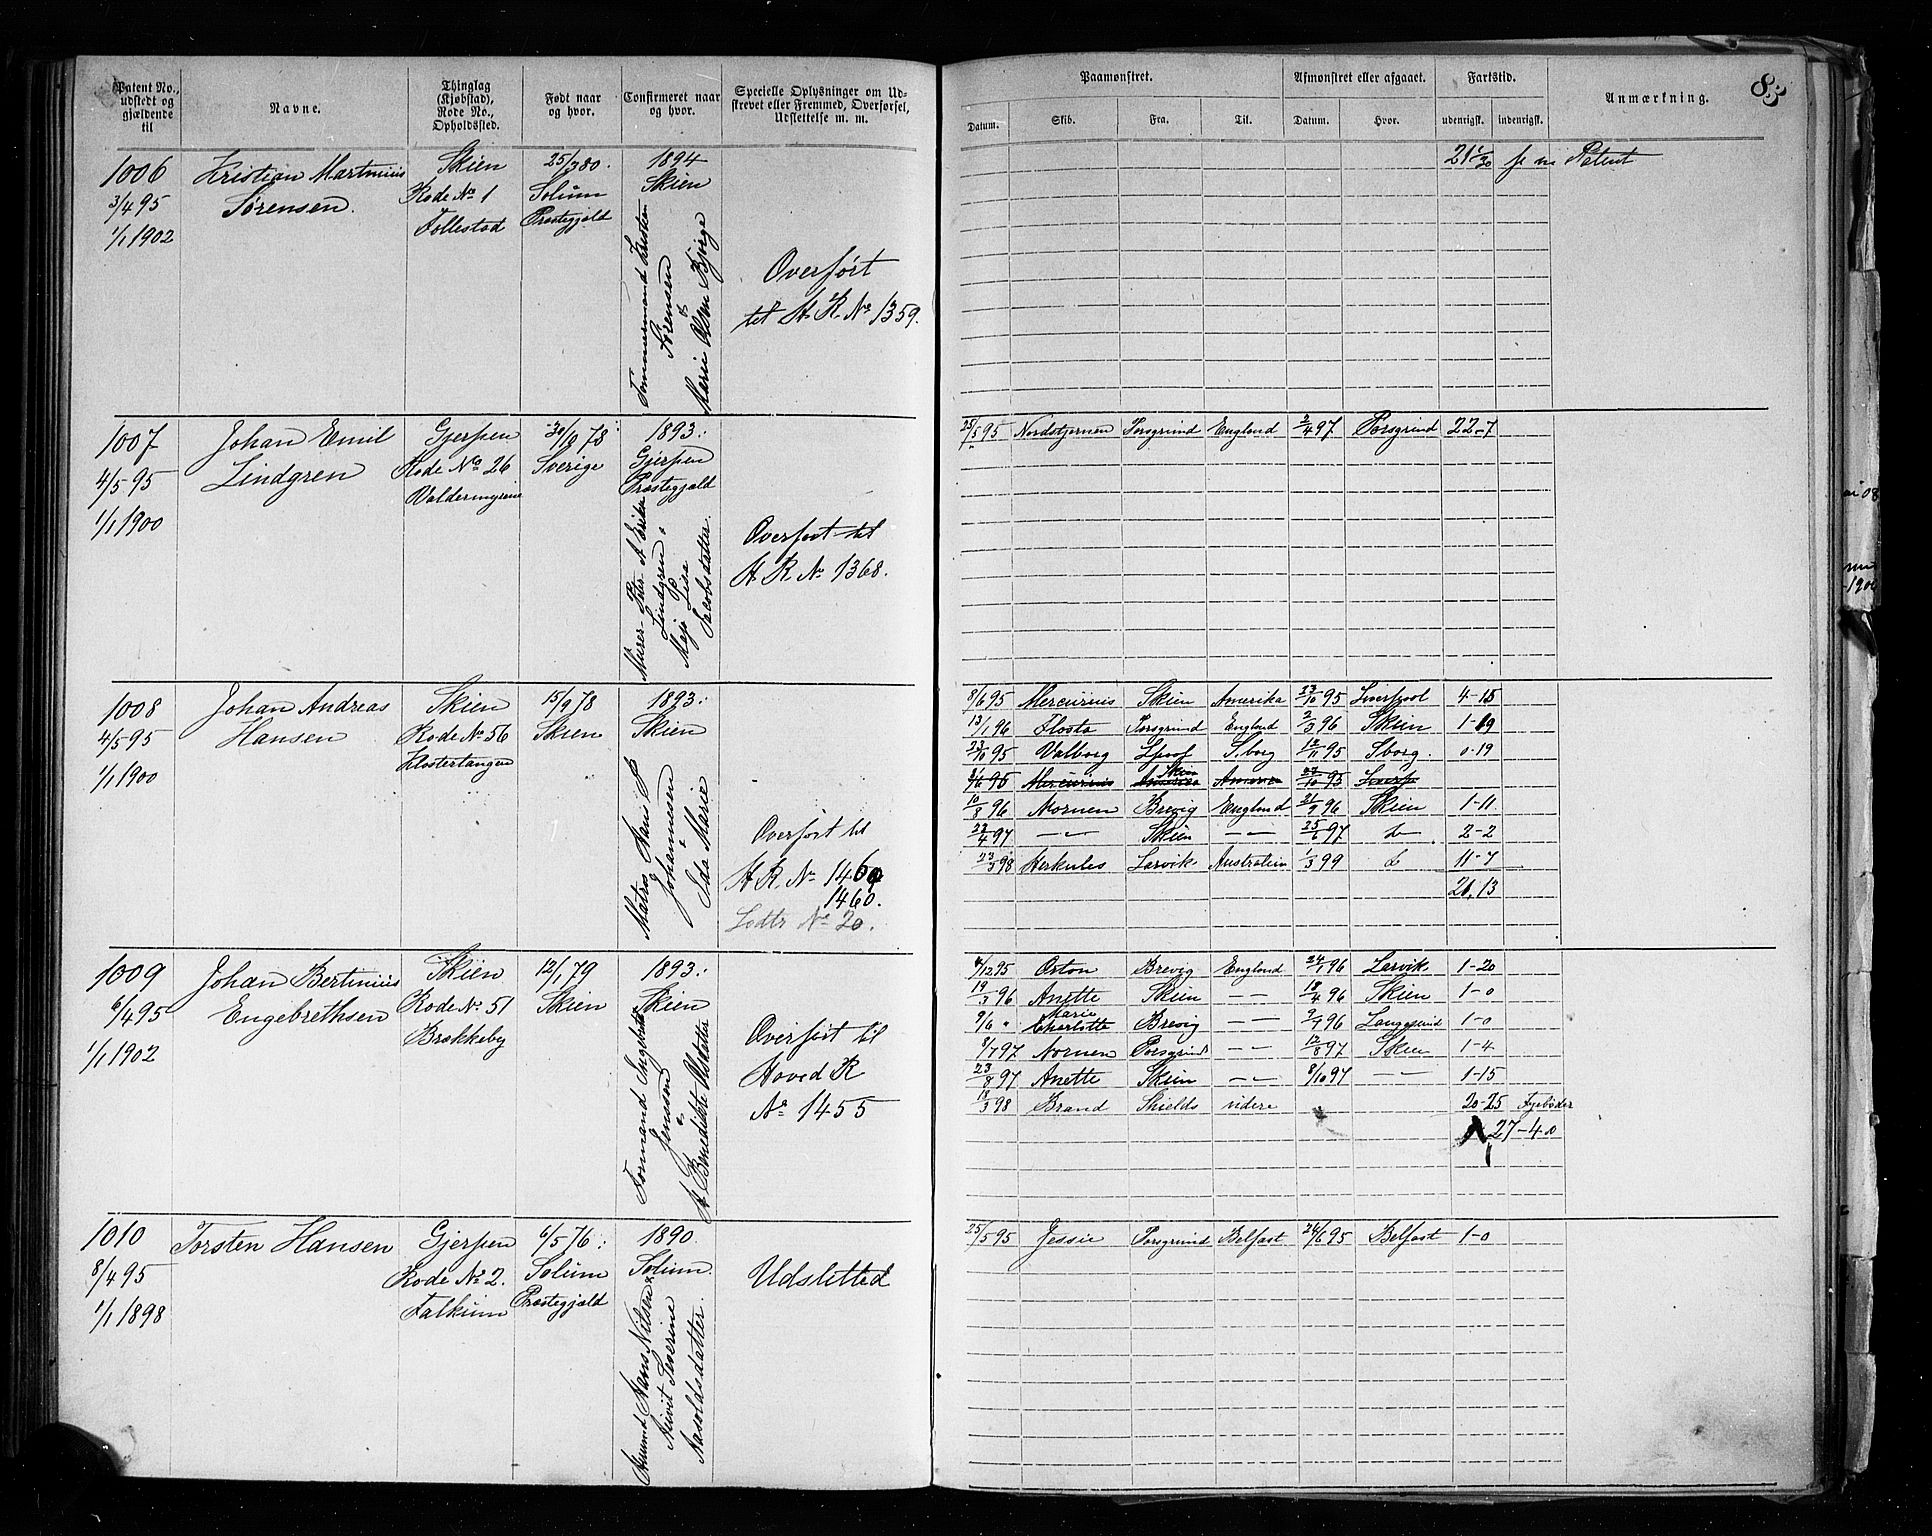 Patent No., udstedt og gjældende til
Navne.
Thinglag (Kjøbstad), Rode No., Opholdssted.
Født naar og hvor.
Confirmeret naar og hvor.
Specielle Oplysninger om Udskrevet eller Fremmed, Overførsel, Udslettelse m. m.
Paamønstret.
Afmønstret eller afgaaet.
Fartstid.
Anmærkning.
83
Datum. Skib. Fra. Til. Datum. Hvor. udenrigsk. indenrigsk.
1006 Kristian Martinius Skien 25/7 80. 1894
3/4 95 Sørensen. Rode No 1 Solum Skien
1/1 1902 Follestad Præstegjæld
Tømmermand Kristian
Sørensen
Maren Olsen Bjørge
Overført
til H. R. No 1359.
Patent
1007 Johan Emil Gjerpen 30/9 78 1893.
4/5 95 Lindgren Rode No 26 Sverige Gjerpen
Valdermyrene Præstegjæld
1/1 1900
Lindgren
Maja Lisa
Jacobsdatter.
Overført til
H R No 1368.
25/5 95 Nordstjernen Porsgrund England 2/4 97 Porsgrund 22-7
1008 Johan Andreas Skien 15/9 78 1893.
4/5 95 Hansen Rode No 56 Skien Skien
1/1 1900 Klostertangen
Matros Hans P
Johannesen
Ida Marie
Overført til
H R. No 1460
1460.
Lodtr No 20.
8/6 95 Mercurius Skien Amerika 23/10 95 Liverpool 4-15
13/1 96 Flosta Porsgrund England 2/3 96 Skien 1-19
23/10 95 Valborg Lpool S.borg 12/11 95 Sborg. 0-19
8/6 95 Mercurius Skien Amerika 22/10 95 Liverp
10/8 96 Nornen Brevig England 21/9 96 Skien 1-11
23/4 97 — Skien — 25/6 97 2-2
23/3 98 Herkules Larvik Australien 1/3 99 11-7
21,13
1009 Johan Bertinius Skien 12/1 79 1893.
6/4 95 Engebrethsen Rode No 51 Skien Skien
1/1 1902 Brækkeby
Formand Ingebret
Jenssen
A Benedikte Olsdatter
Overført til
Hoved R
No 1455
4/12 95 Orton Brevig England 24/1 96 Larvik. 1-20
19/3 96 Anette Skien — 18/4 96 Skien 1-0
9/6 " Marie Charlotte Brevig — 9/7 96 Langesund 1-0
8/7 97 Nornen Porsgrund — 12/8 97 Skien 1-4
23/8 97 Anette Skien — 8/10 97 — 1-15
18/3 98 Brand Shields videre 20-25 Fyrbøder
27-40
1010 Torsten Hansen Gjerpen 6/5 76. 1890.
8/4 95 Rode No 2. Solum Solum.
1/1 1898 Falkum Præstegjæld
Hans Nilsen
Severine
Aasoldsdatter.
Udslitted
25/5 95 Jessie Porsgrund Belfast 24/6 95 Belfast 1-0